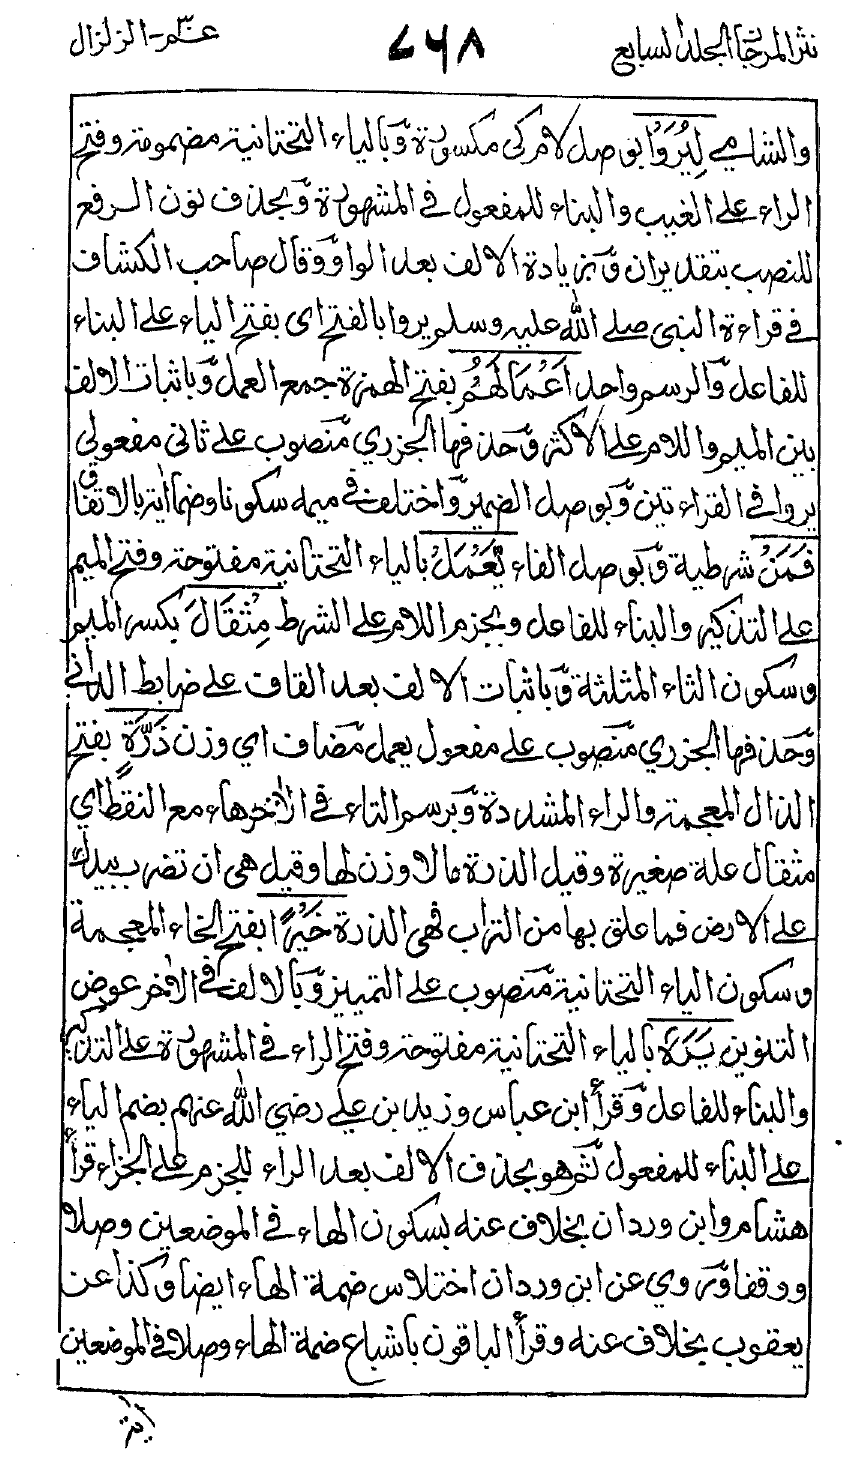 نثر المرجان المجلد السابع
٧٦٨
عمّ - الزلزال
والشامي لِيُرَوْا بوصل لام كي مكسورة وَّبالياء التحتانية مضمومة وفتح
الراء على الغيب والبناء للمفعول في المشهورة وَّبحذف نون الرفع
للنصب بتقدير ان وَّبزيادة الالف بعد الواو وَّقال صاحب الكشاف
في قراءة النبي صلى الله عليه وسلم يروا بالفتح اى بفتح الياء على البناء
للفاعل وَّالرسم واحد اَعْمَالَهُمْ بفتح الهمزة جمع العمل وَّباثبات الالف
بين الميم واللام على الاكثر وَّحذفها الجزري مَّنصوب على ثانى مفعولي
يروا في القراءتين وَّبوصل الضمير وَّاختلف في ميمه سكونا وضما اٰية بالاتفاق
فَمَنْ شرطية وَّبوصل الفاء يَّعْمَلْ بالياء التحتانية مفتوحة وفتح الميم
على التذكير والبناء للفاعل وبجزم اللام على الشرط مِثْقَالَ بكسر الميم
وسكون الثاء المثلثة وَّباثبات الالف بعد القاف على ضابط الداني
وَّحذفها الجزري مَّنصوب على مفعول يعمل مَّضاف اي وزن ذَرَّةٍ بفتح
الذال المعجمة والراء المشددة وَّبرسم التاء في الاٰخر هاء مع النقط اي
مثقال نملة صغيرة وقيل الذرة مالا وزن لها وقيل هى ان تضرب بيدك
على الارض فما علق بها من التراب فهي الذرة خَيْرًا بفتح الخاء المعجمة
وسكون الياء التحتانية مَّنصوب على التمييز وَّبالالف في الاٰخر عوض
التنوين يَّرَهٗ بالياء التحتانية مفتوحة وفتح الراء في المشهورة على التذكير
والبناء للفاعل وَّقرأ ابن عباس وزيد بن علي رضي الله عنهم بضم الياء
على البناء للمفعول ثم هو بحذف الالف بعد الراء للجزم على الجزاء قرأ
هشام وابن وردان بخلاف عنه بسكون الهاء في الموضعين وصلا
ووقفا وَّروي عن ابن وردان اختلاس ضمة الهاء ايضا وكذا عن
يعقوب بخلاف عنه وقرأ الباقون باشباع ضمة الهاء وصلا في الموضعين